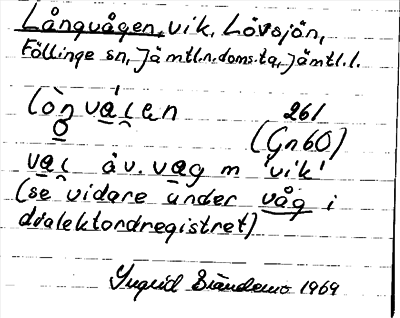 Långvågen, vik, Lövsjön,
Föllinge sn, Jämtl.n.doms.ta, Jämtl.l.
261
lòn vá̱i̯en
(Gn60)
va̱i̯ äv. va̱g m 'vik'
(se vidare under våg i
dialektordregistret)
Ingrid 1969